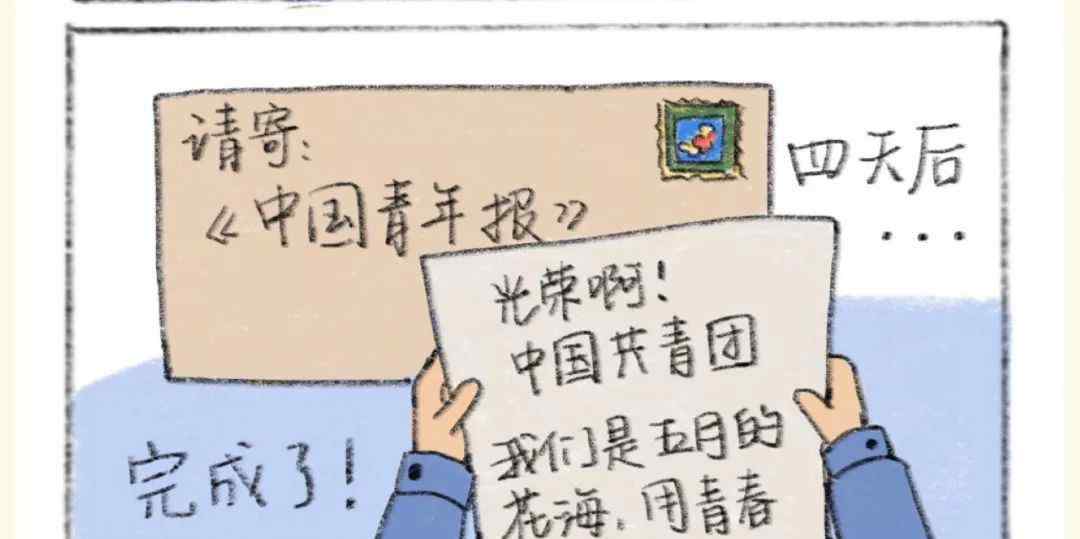 请寄：
《中国青年报》
四天后
...
光荣啊！
中国共青团
我们是五月的
花海，用青春
完成了！